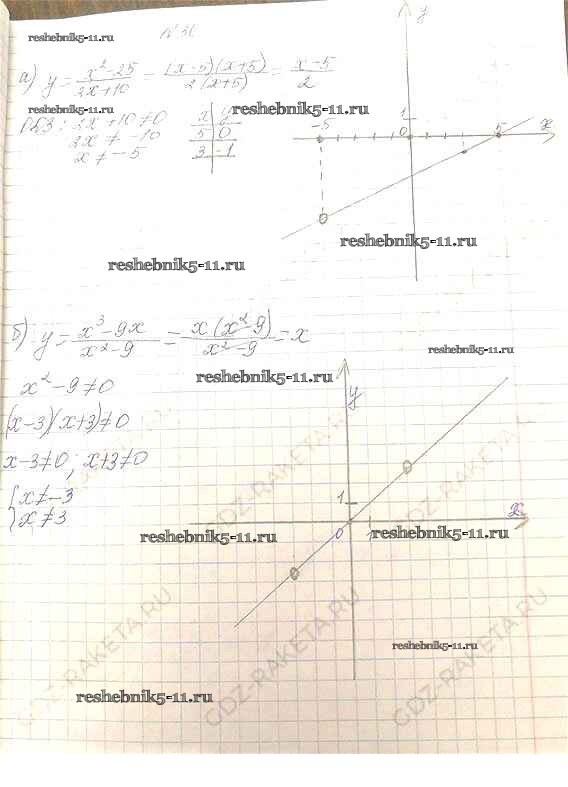 № 30
reshebnik5-11.ru
а) y = x²-25 / 2x+10 = (x-5)(x+5) / 2(x+5) = x-5 / 2
reshebnik5-11.ru
reshebnik5-11.ru
ОДЗ: 2x+10≠0
2x ≠ -10
x ≠ -5
x y
5 0
3 -1
y
1
-5 0 5 x
reshebnik5-11.ru
reshebnik5-11.ru
б) y = x³-9x / x²-9 = x(x²-9) / x²-9 = x
reshebnik5-11.ru
reshebnik5-11.ru
x²-9≠0
(x-3)(x+3)≠0
x-3≠0; x+3≠0
{x≠-3
x≠3
y
1
0 1 x
reshebnik5-11.ru
reshebnik5-11.ru
GDZ-RAKETA.RU
GDZ-RAKETA.RU
GDZ-RAKETA.RU
reshebnik5-11.ru
reshebnik5-11.ru
GDZ-RAKETA.RU
GDZ-RAKETA.RU
GDZ-RAKETA.RU